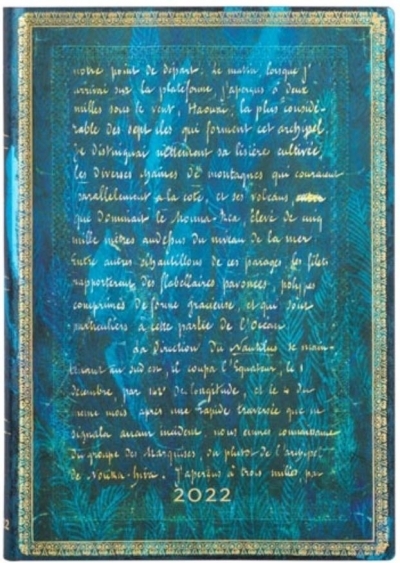 notre point de départ. Le matin, lorsque j'
arrivai sur la plateforme, j'aperçus à deux
milles sous le vent, Haouaï, la plus considé-
rable des sept îles qui forment cet archipel.
Je distinguai nettement sa lisière cultivée,
les diverses chaînes de montagnes qui couraient
parallèlement à la côte, et ses volcans,
que dominait le Mouna-Rea, élevé de cinq
mille mètres audessus du niveau de la mer
Entre autres échantillons de ces parages, les filets
rapportèrent des flabellaires pavonées, polypes
comprimés de forme gracieuse, et qui sont
particuliers à cette partie de l'Océan.
La direction du Nautilus se main-
au sud-est, il coupa l'Equateur, le 1
décembre, par 142° de longitude, et le 4 du
même mois après une rapide traversée que ne
signala aucun incident, nous eûmes connaissance
du groupe des Marquises,
de Nouka-hiva. J'aperçus à trois milles, par
2022
2